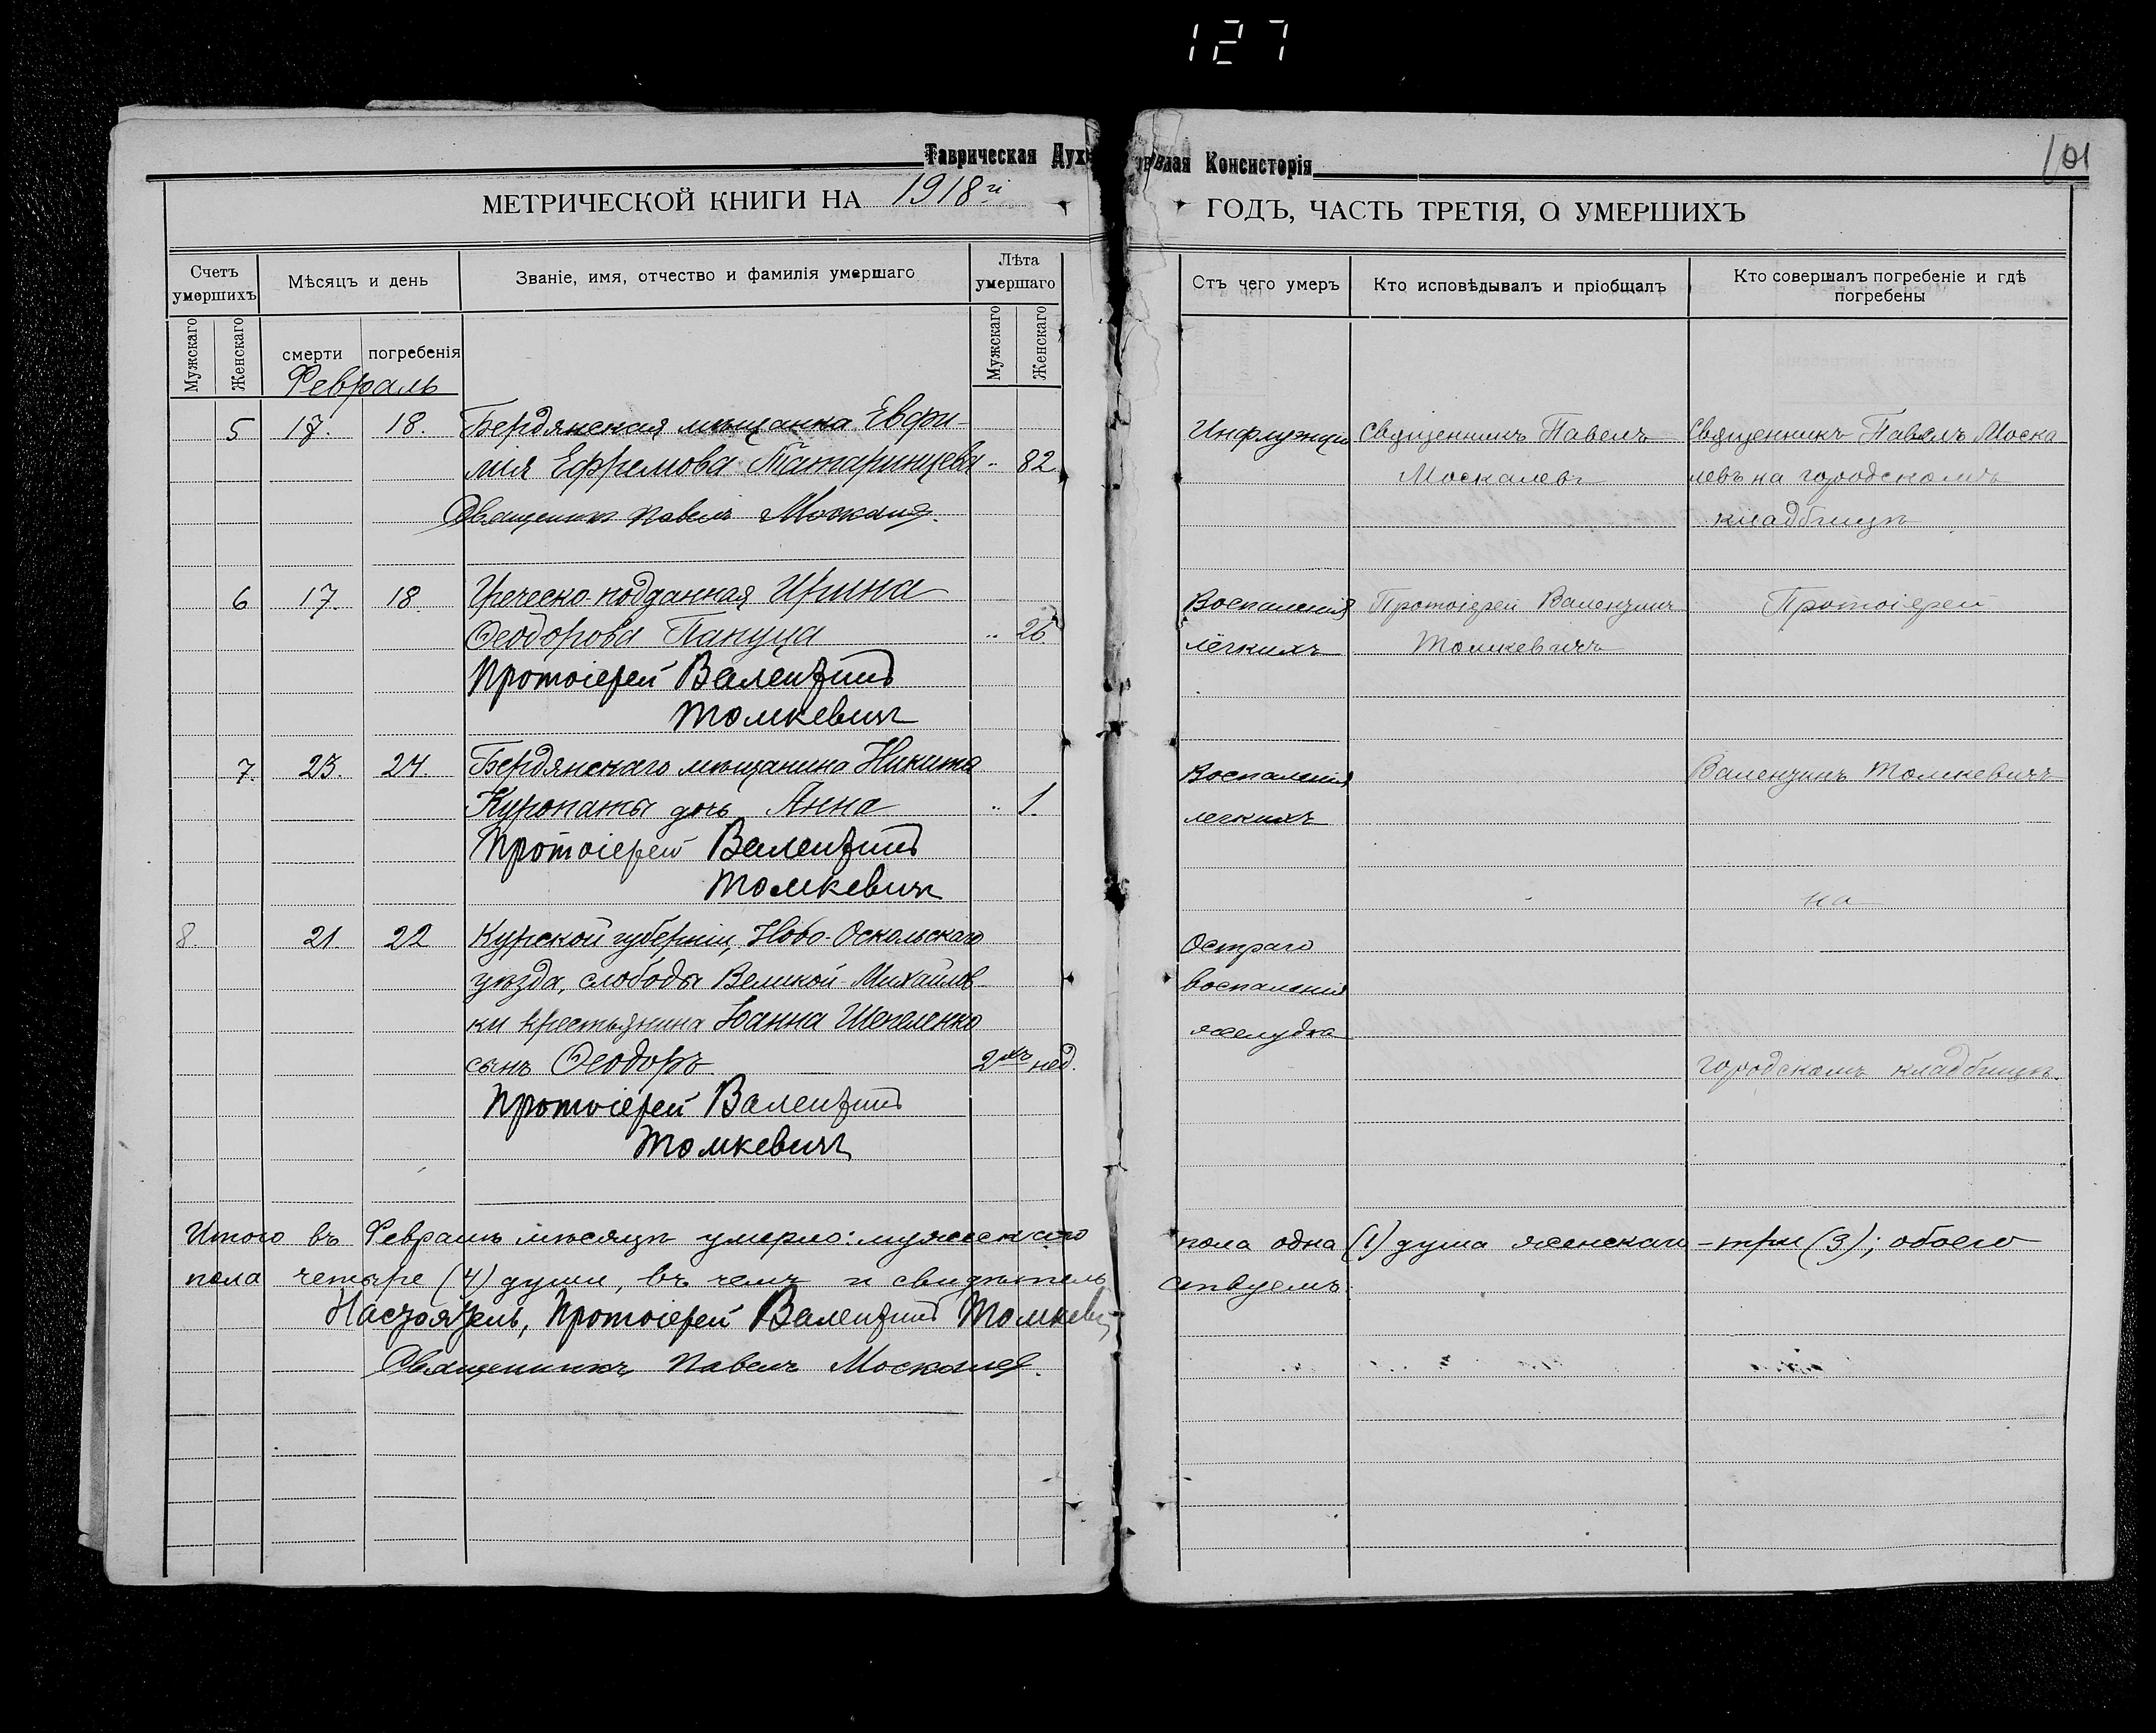 127
Таврическая Духовная Консисторія
101
МЕТРИЧЕСКОЙ КНИГИ НА 1918й ГОДЪ, ЧАСТЬ ТРЕТІЯ, О УМЕРШИХЪ
Счетъ умершихъ
Мѣсяцъ и день
Званіе, имя, отчество и фамилія умершаго
Лѣта умершаго
Мужскаго
Женскаго
смерти
погребенія
Мужскаго
Женскаго
Отъ чего умеръ
Кто исповѣдывалъ и пріобщалъ
Кто совершалъ погребеніе и гдѣ погребены
Февраль
5 17. 18. Бердянская мѣщанка Евфи-
мія Ефремова Татаринцева „ 82
Священникъ Павелъ Москалев.
Инфлуэнціи
Священникъ Павелъ
Москалевъ
Священникъ Павелъ Моска
левъ на городскомъ
кладбищѣ
6 17. 18 Греческо-подданная Ирина
Ѳеодорова Пануца „ 26
Протоіерей Валентинъ
Томкевичъ
Воспаленія
лёгкихъ
Протоіерей Валентинъ
Томкевичъ
Протоіерей
7. 23. 24. Бердянскаго мѣщанина Никита
Куропаты дочь Анна „ 1.
Протоіерей Валентинъ
Томкевичъ
Воспаленія
легкихъ
Валентинъ Томкевичъ
на
8. 21. 22 Курской губерніи, Ново-Оскольскаго
уѣзда, слободы Великой-Михайлов-
ки крестьянина Іоанна
сынъ Ѳеодоръ 2хъ нед.
Протоіерей Валентинъ
Томкевичъ
Остраго
воспаленія
желудка
городскомъ кладбищѣ.
Итого въ Февралѣ мѣсяцѣ умерло: мужескаго пола одна (1) душа женскаго - три (3); обоего
пола четыре (4) души, въ чемъ и свидѣтель ствуемъ:
Настоятель, Протоіерей Валентинъ Томкевич
Священникъ Павелъ Москалев.